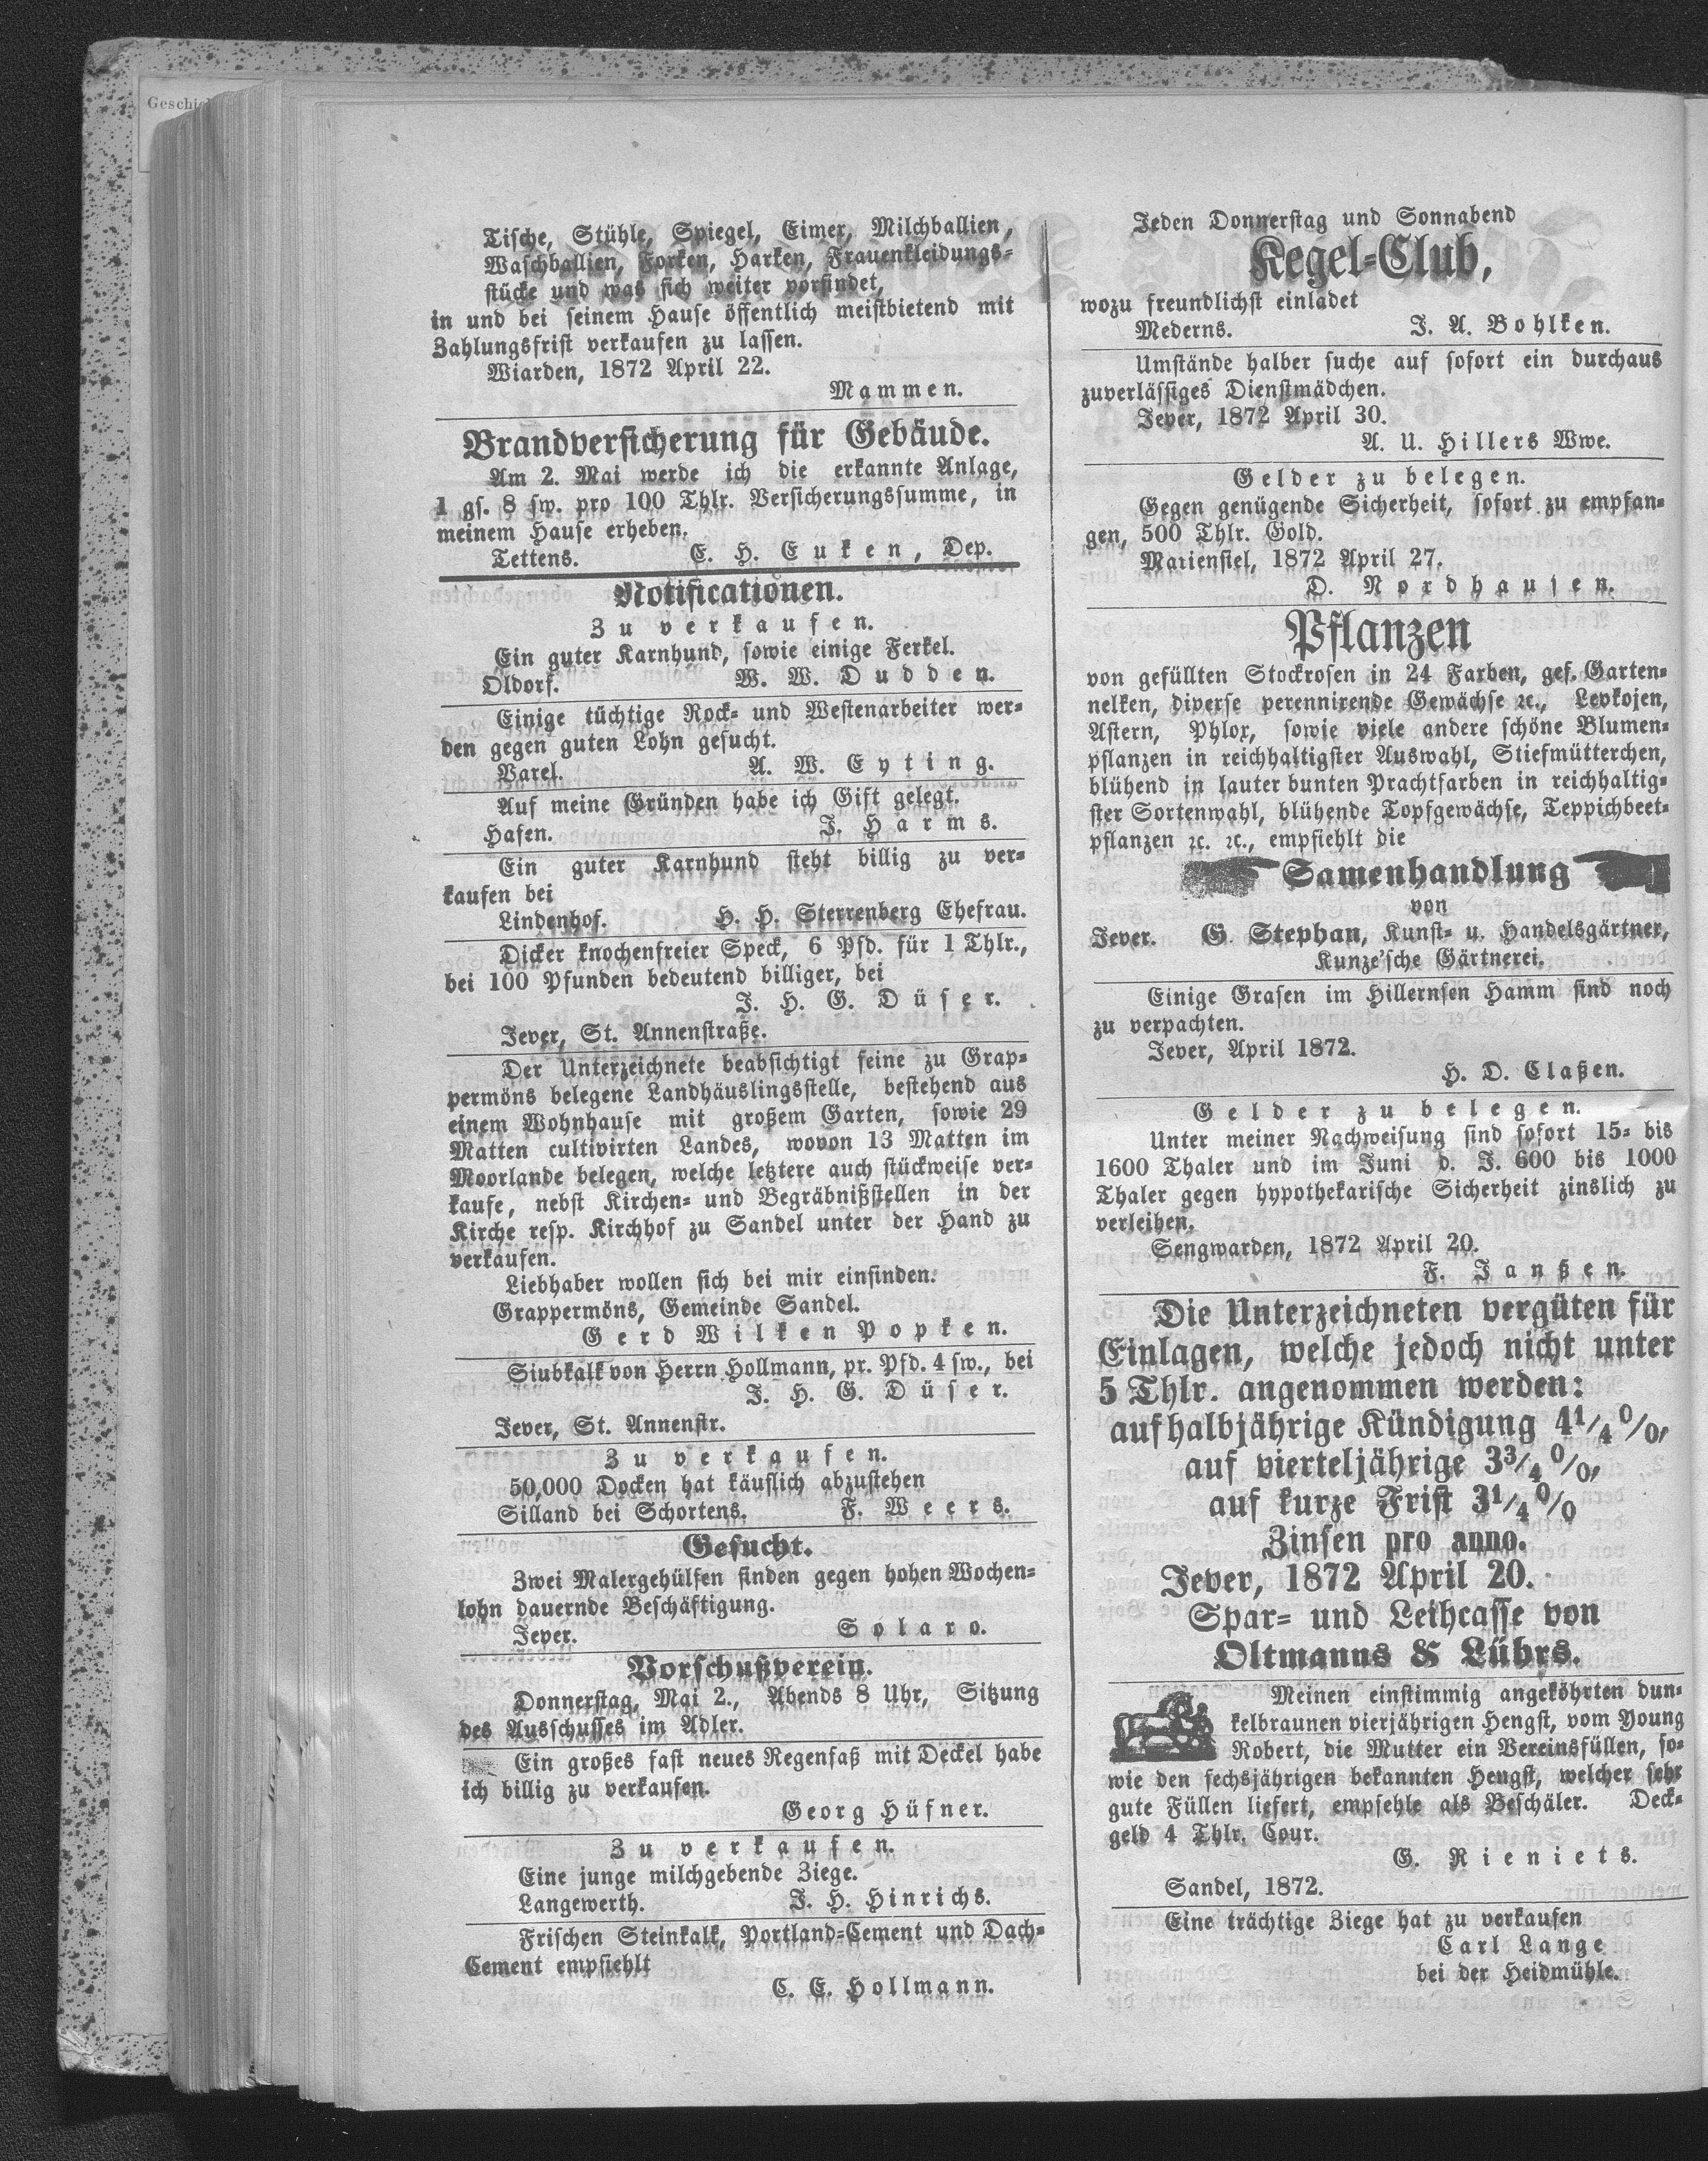 Geschic
Tische, Stühle, Spiegel, Eimer, Milchballien,
Waschballien, Forken, Harken, Frauenkleidungs-
stücke und was sich weiter vorfindet,
in und bei seinem Hause öffentlich meistbietend mit
Zahlungsfrist verkaufen zu lassen.
Wiarden, 1872 April 22.
Mammen.
Brandversicherung für Gebäude.
Am 2. Mai werde ich die erkannte Anlage,
1 gs. 8 sw. pro 100 Thlr. Versicherungssumme, in
meinem Hause erheben.
Tettens. E. H. Euken, Dep.
Notificationen.
Zu verkaufen.
Ein guter Karnhund, sowie einige Ferkel.
Oldorf. W. W. Dudden.
Einige tüchtige Rock- und Westenarbeiter wer-
den gegen guten Lohn gesucht.
Varel. A. W. Eyting.
Auf meine Gründen habe ich Gift gelegt.
Hafen. J. Harms.
Ein guter Karnhund steht billig zu ver-
kaufen bei
Lindenhof. H. H. Sterrenberg Ehefrau.
Dicker knochenfreier Speck, 6 Pfd. für 1 Thlr.,
bei 100 Pfunden bedeutend billiger, bei
J. H. G. Düser.
Jever, St. Annenstraße.
Der Unterzeichnete beabsichtigt seine zu Grap-
permöns belegene Landhäuslingsstelle, bestehend aus
einem Wohnhause mit großem Garten, sowie 29
Matten cultivirten Landes, wovon 13 Matten im
Moorlande belegen, welche letztere auch stückweise ver-
kaufe, nebst Kirchen- und Begräbnißstellen in der
Kirche resp. Kirchhof zu Sandel unter der Hand zu
verkaufen.
Liebhaber wollen sich bei mir einfinden.
Grappermöns, Gemeinde Sandel.
Gerd Wilken Popken.
Siubkalk von Herrn Hollmann, pr. Pfd. 4 sw., bei
J. H. G. Düser.
Jever, St. Annenstr.
Zu verkaufen.
50,000 Docken hat käuflich abzustehen
Silland bei Schortens. F. Weers.
Gesucht.
Zwei Malergehülfen finden gegen hohen Wochen-
lohn dauernde Beschäftigung.
Jever. Solaro.
Vorschußverein.
Donnerstag, Mai 2., Abends 8 Uhr, Sitzung
des Ausschusses im Adler.
Ein großes fast neues Regenfaß mit Deckel habe
ich billig zu verkaufen.
Georg Hüfner.
Zu verkaufen.
Eine junge milchgebende Ziege.
Langewerth. J. H. Hinrichs.
Frischen Steinkalk, Portland-Cement und Dach-
Cement empfiehlt
C. E. Hollmann.
Jeden Donnerstag und Sonnabend
Kegel-Club,
wozu freundlichst einladet
Mederns. J. A. Bohlken.
Umstände halber suche auf sofort ein durchaus
zuverlässiges Dienstmädchen.
Jever, 1872 April 30.
A. U. Hillers Wwe.
Gelder zu belegen.
Gegen genügende Sicherheit, sofort zu empfan-
gen, 500 Thlr. Gold.
Mariensiel, 1872 April 27.
D. Nordhausen.
Pflanzen
von gefüllten Stockrosen in 24 Farben, gef. Garten-
nelken, diverse perennirende Gewächse ꝛc., Levkojen,
Astern, Phlox, sowie viele andere schöne Blumen-
pflanzen in reichhaltigster Auswahl, Stiefmütterchen,
blühend in lauter bunten Prachtfarben in reichhaltig-
ster Sortenwahl, blühende Topfgewächse, Teppichbeet-
pflanzen ꝛc. ꝛc., empfiehlt die
Samenhandlung
von
Jever. G. Stephan, Kunst- u. Handelsgärtner,
Kunze'sche Gärtnerei.
Einige Grasen im Hillernsen Hamm sind noch
zu verpachten.
Jever, April 1872.
H. D. Claßen.
Gelder zu belegen.
Unter meiner Nachweisung sind sofort 15- bis
1600 Thaler und im Juni d. J. 600 bis 1000
Thaler gegen hypothekarische Sicherheit zinslich zu
verleihen.
Sengwarden, 1872 April 20.
F. Janßen.
Die Unterzeichneten vergüten für
Einlagen, welche jedoch nicht unter
5 Thlr. angenommen werden:
auf halbjährige Kündigung 4¹/₄ %,
auf vierteljährige 3³/₄ %,
auf kurze Frist 3¹/₄ %
Zinsen pro anno.
Jever, 1872 April 20.
Spar- und Leihcasse von
Oltmanns & Lührs.
Meinen einstimmig angeköhrten dun-
kelbraunen vierjährigen Hengst, vom Young
Robert, die Mutter ein Vereinsfüllen, so-
wie den sechsjährigen bekannten Hengst, welcher sehr
gute Füllen liefert, empfehle als Beschäler. Deck-
geld 4 Thlr. Cour.
G. Rieniets.
Sandel, 1872.
Eine trächtige Ziege hat zu verkaufen
Carl Lange
bei der Heidmühle.